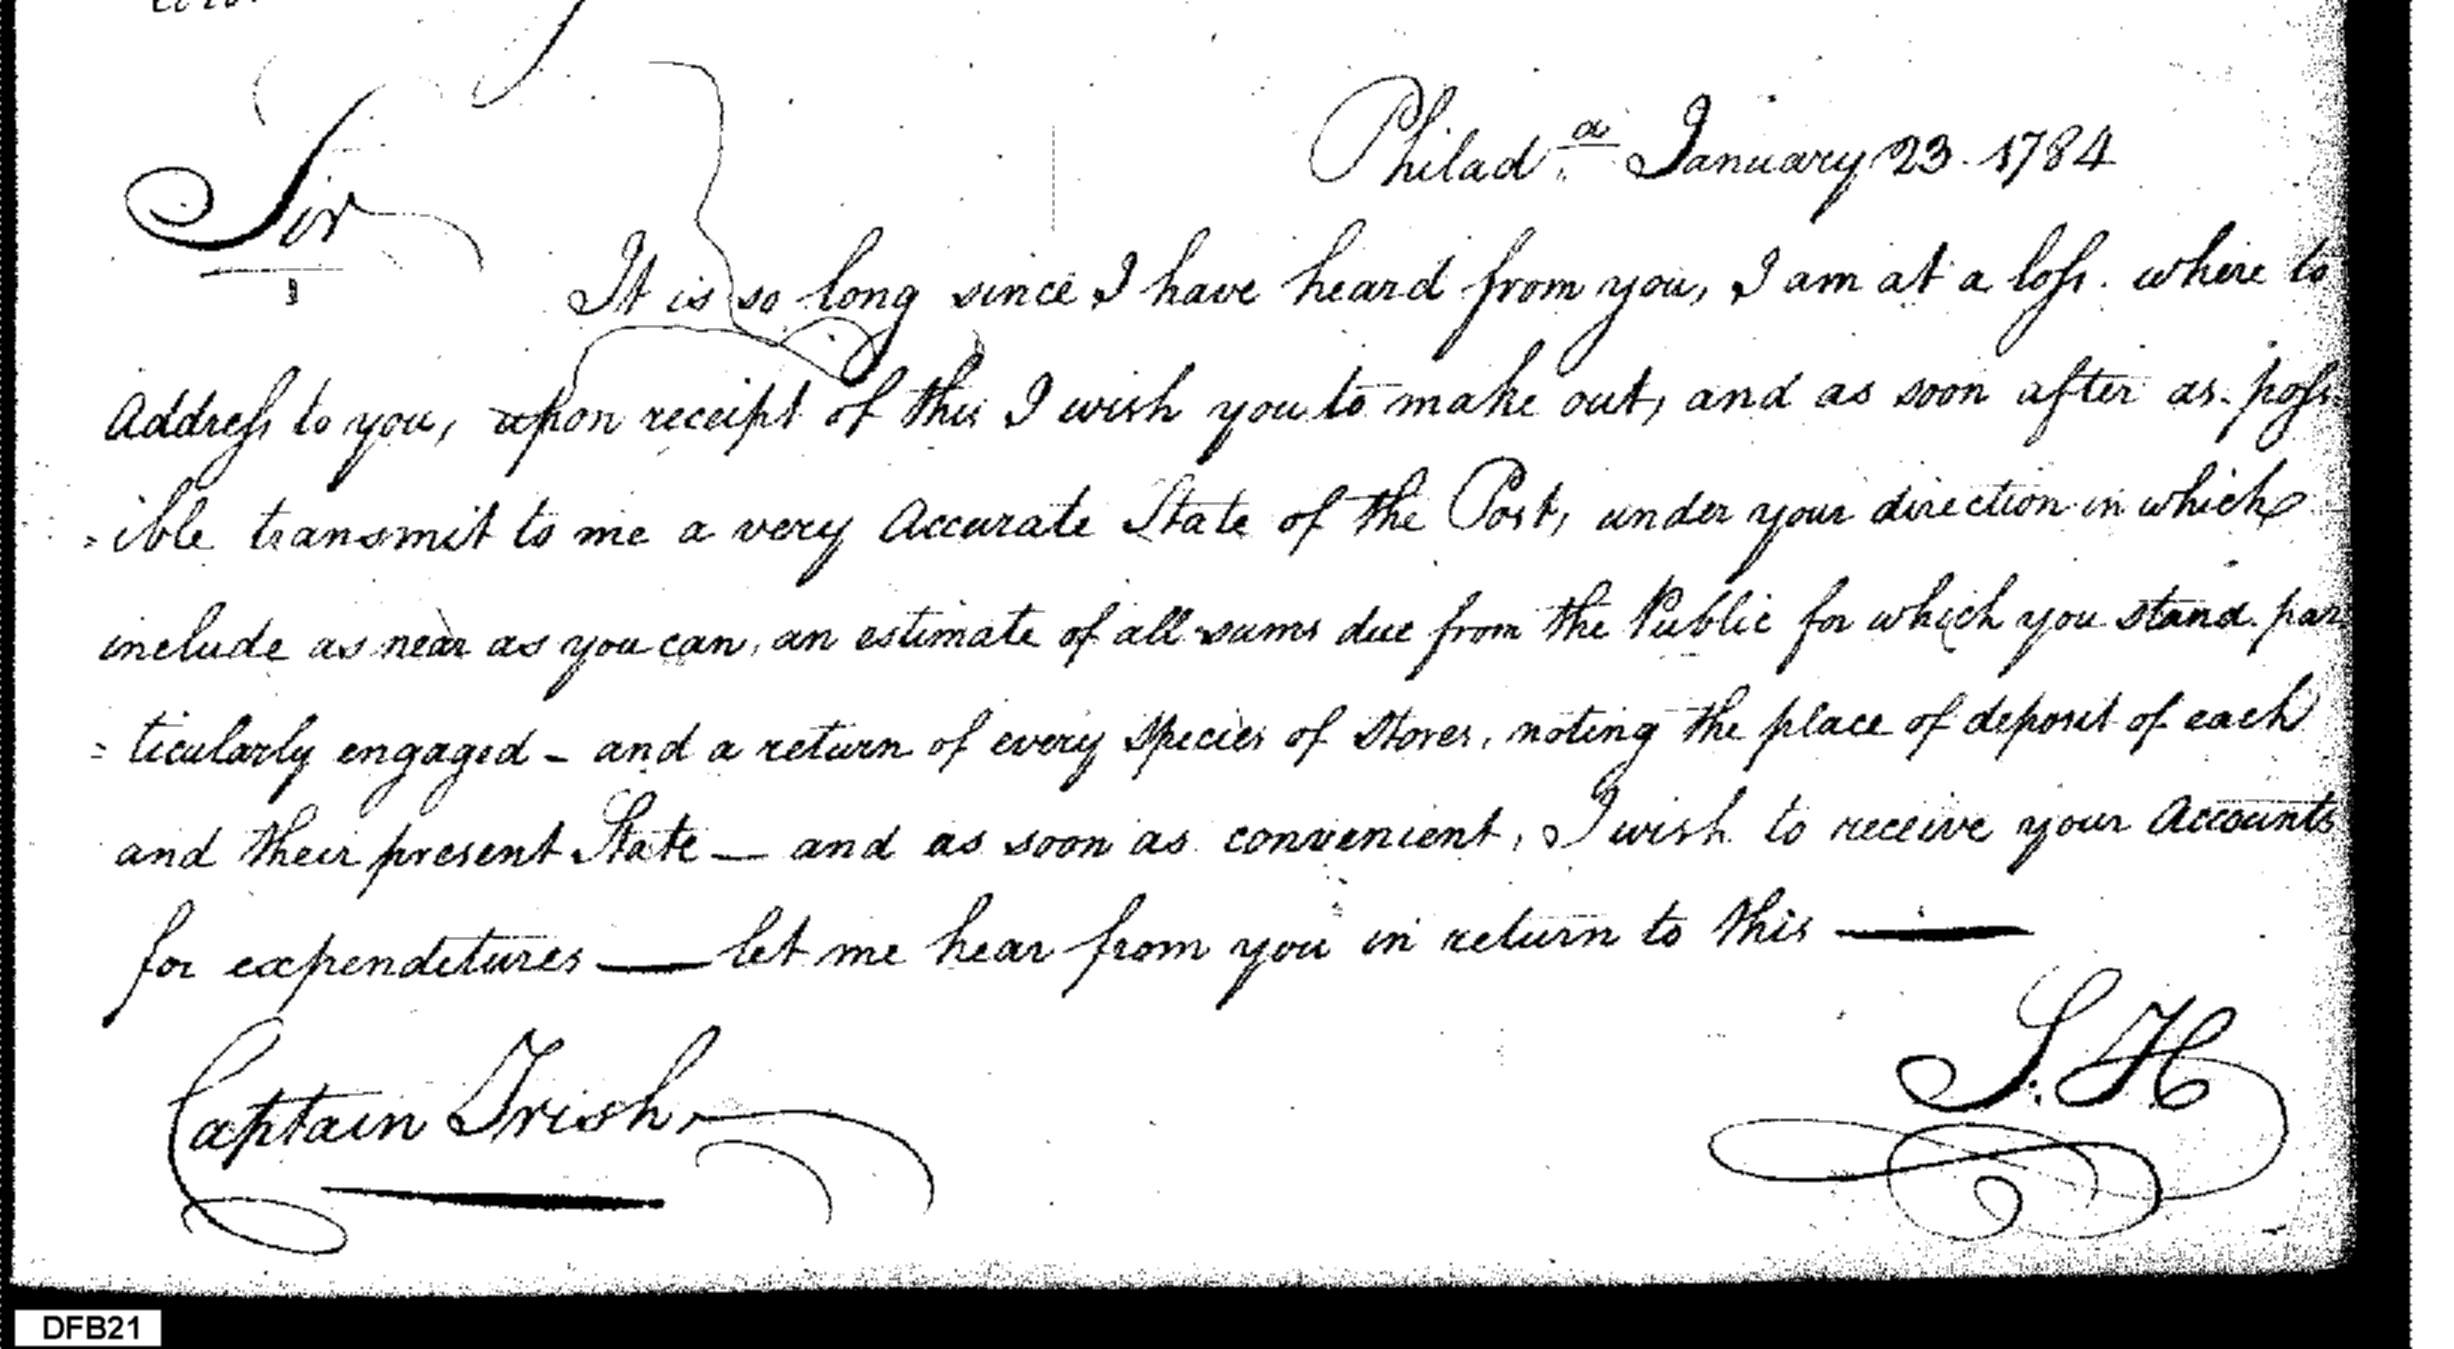 Philad.ᵃ January 23. 1784
Sir
It is so long since I have heard from you, I am at a loss. where to
Address to you, upon receipt of this I wish you to make out, and as soon after as poss
=ible transmit to me a very Accurate State of the Post, under your direction in which
include as near as you can, an estimate of all sums due from the Public for which you stand par
=ticularly engaged – and a return of every Species of Stores, noting the place of deposit of each
and their present State — and as soon as convenient, I wish to receive your Accounts
for expenditures — let me hear from you in return to this —
S. H
Captain Irish
DFB21